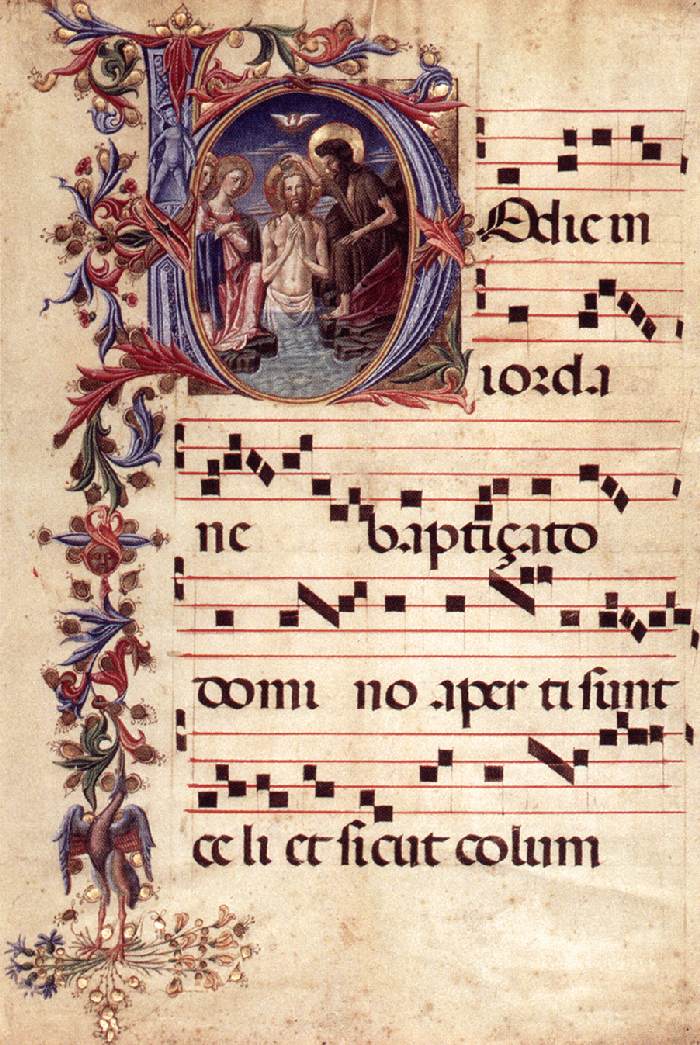 H Odie in
iorda
ne baptiçato
domi no aper ti sunt
ce li et sicut colum